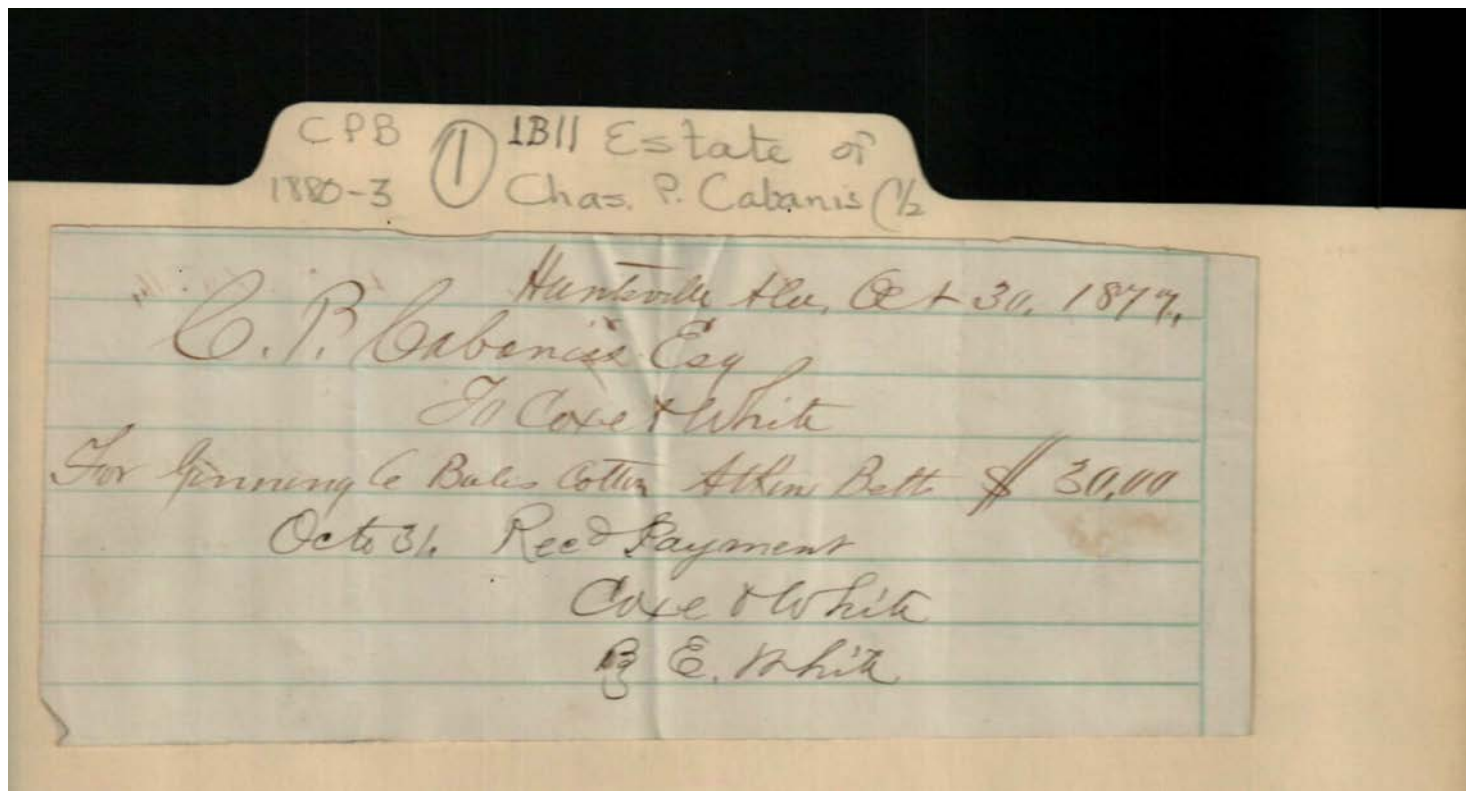 CPB ① 1B11 Estate of
1880-3 Chas. P. Cabanis (1/2
Huntsville Ala, Oct 30, 1877,
C. P. Cabaniss Esq
To Coxe & White
For Ginning 6 Bales Cotton $ 30,00
Oct 31. Recd Payment
Coxe & White
By E. White